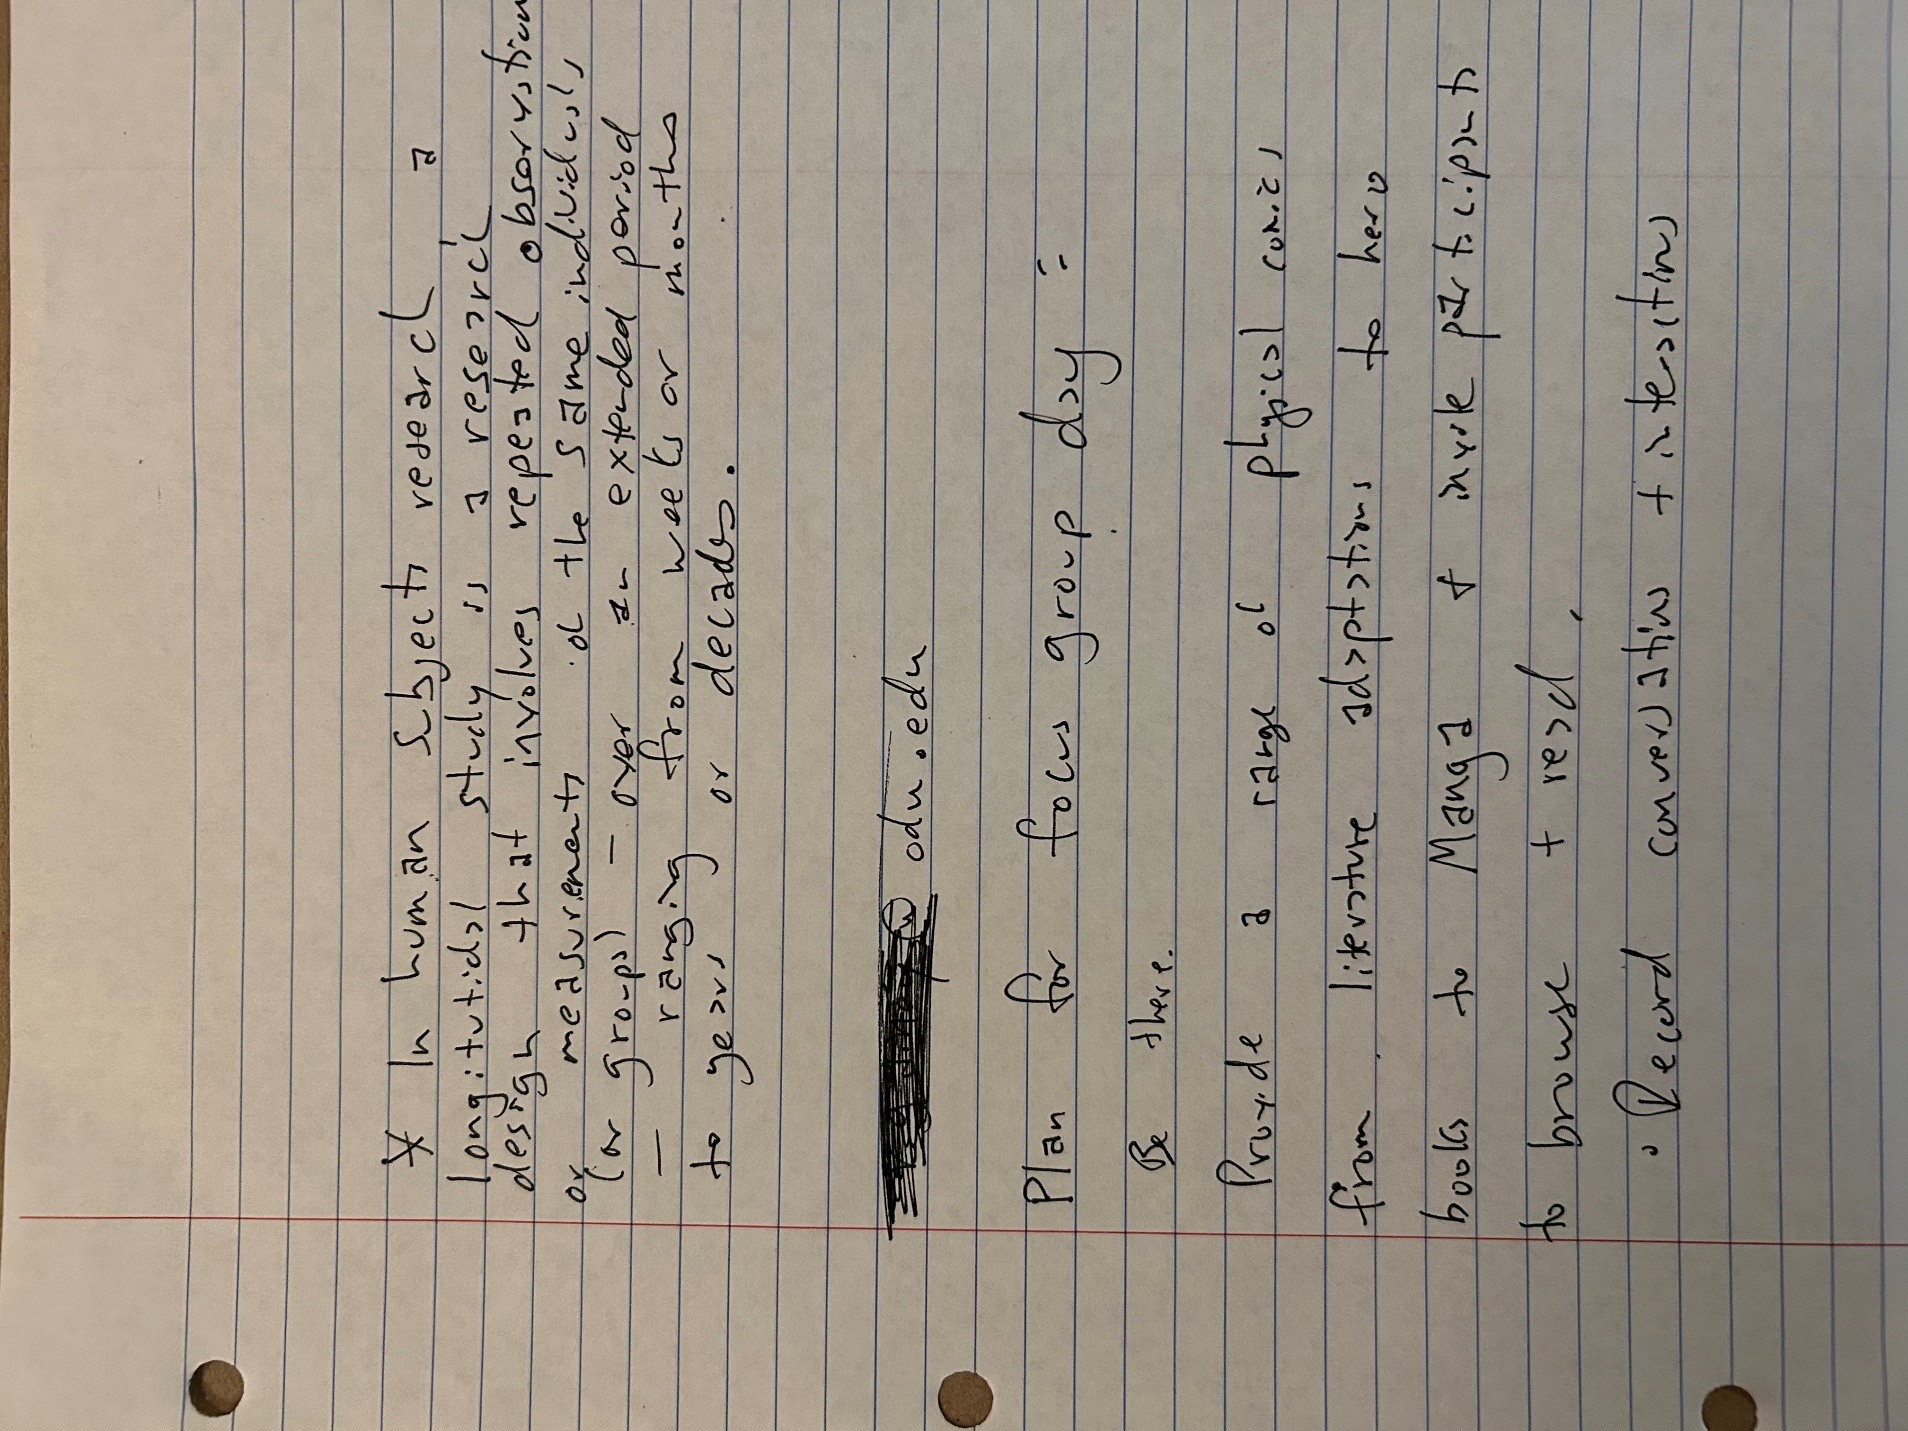 * In human subjects research a
longitutidal study is a research
design that involves repeated observations
or measurements of the same individuals
(or groups) — over an extended period
— ranging from weeks or months
to years or decades.
odu.edu
Plan for focus group day:
Be there.
Provide a range of physical comics
from literature adaptations to hero
books to Manga + invite participants
to browse + read.
• Record conversations + interactions